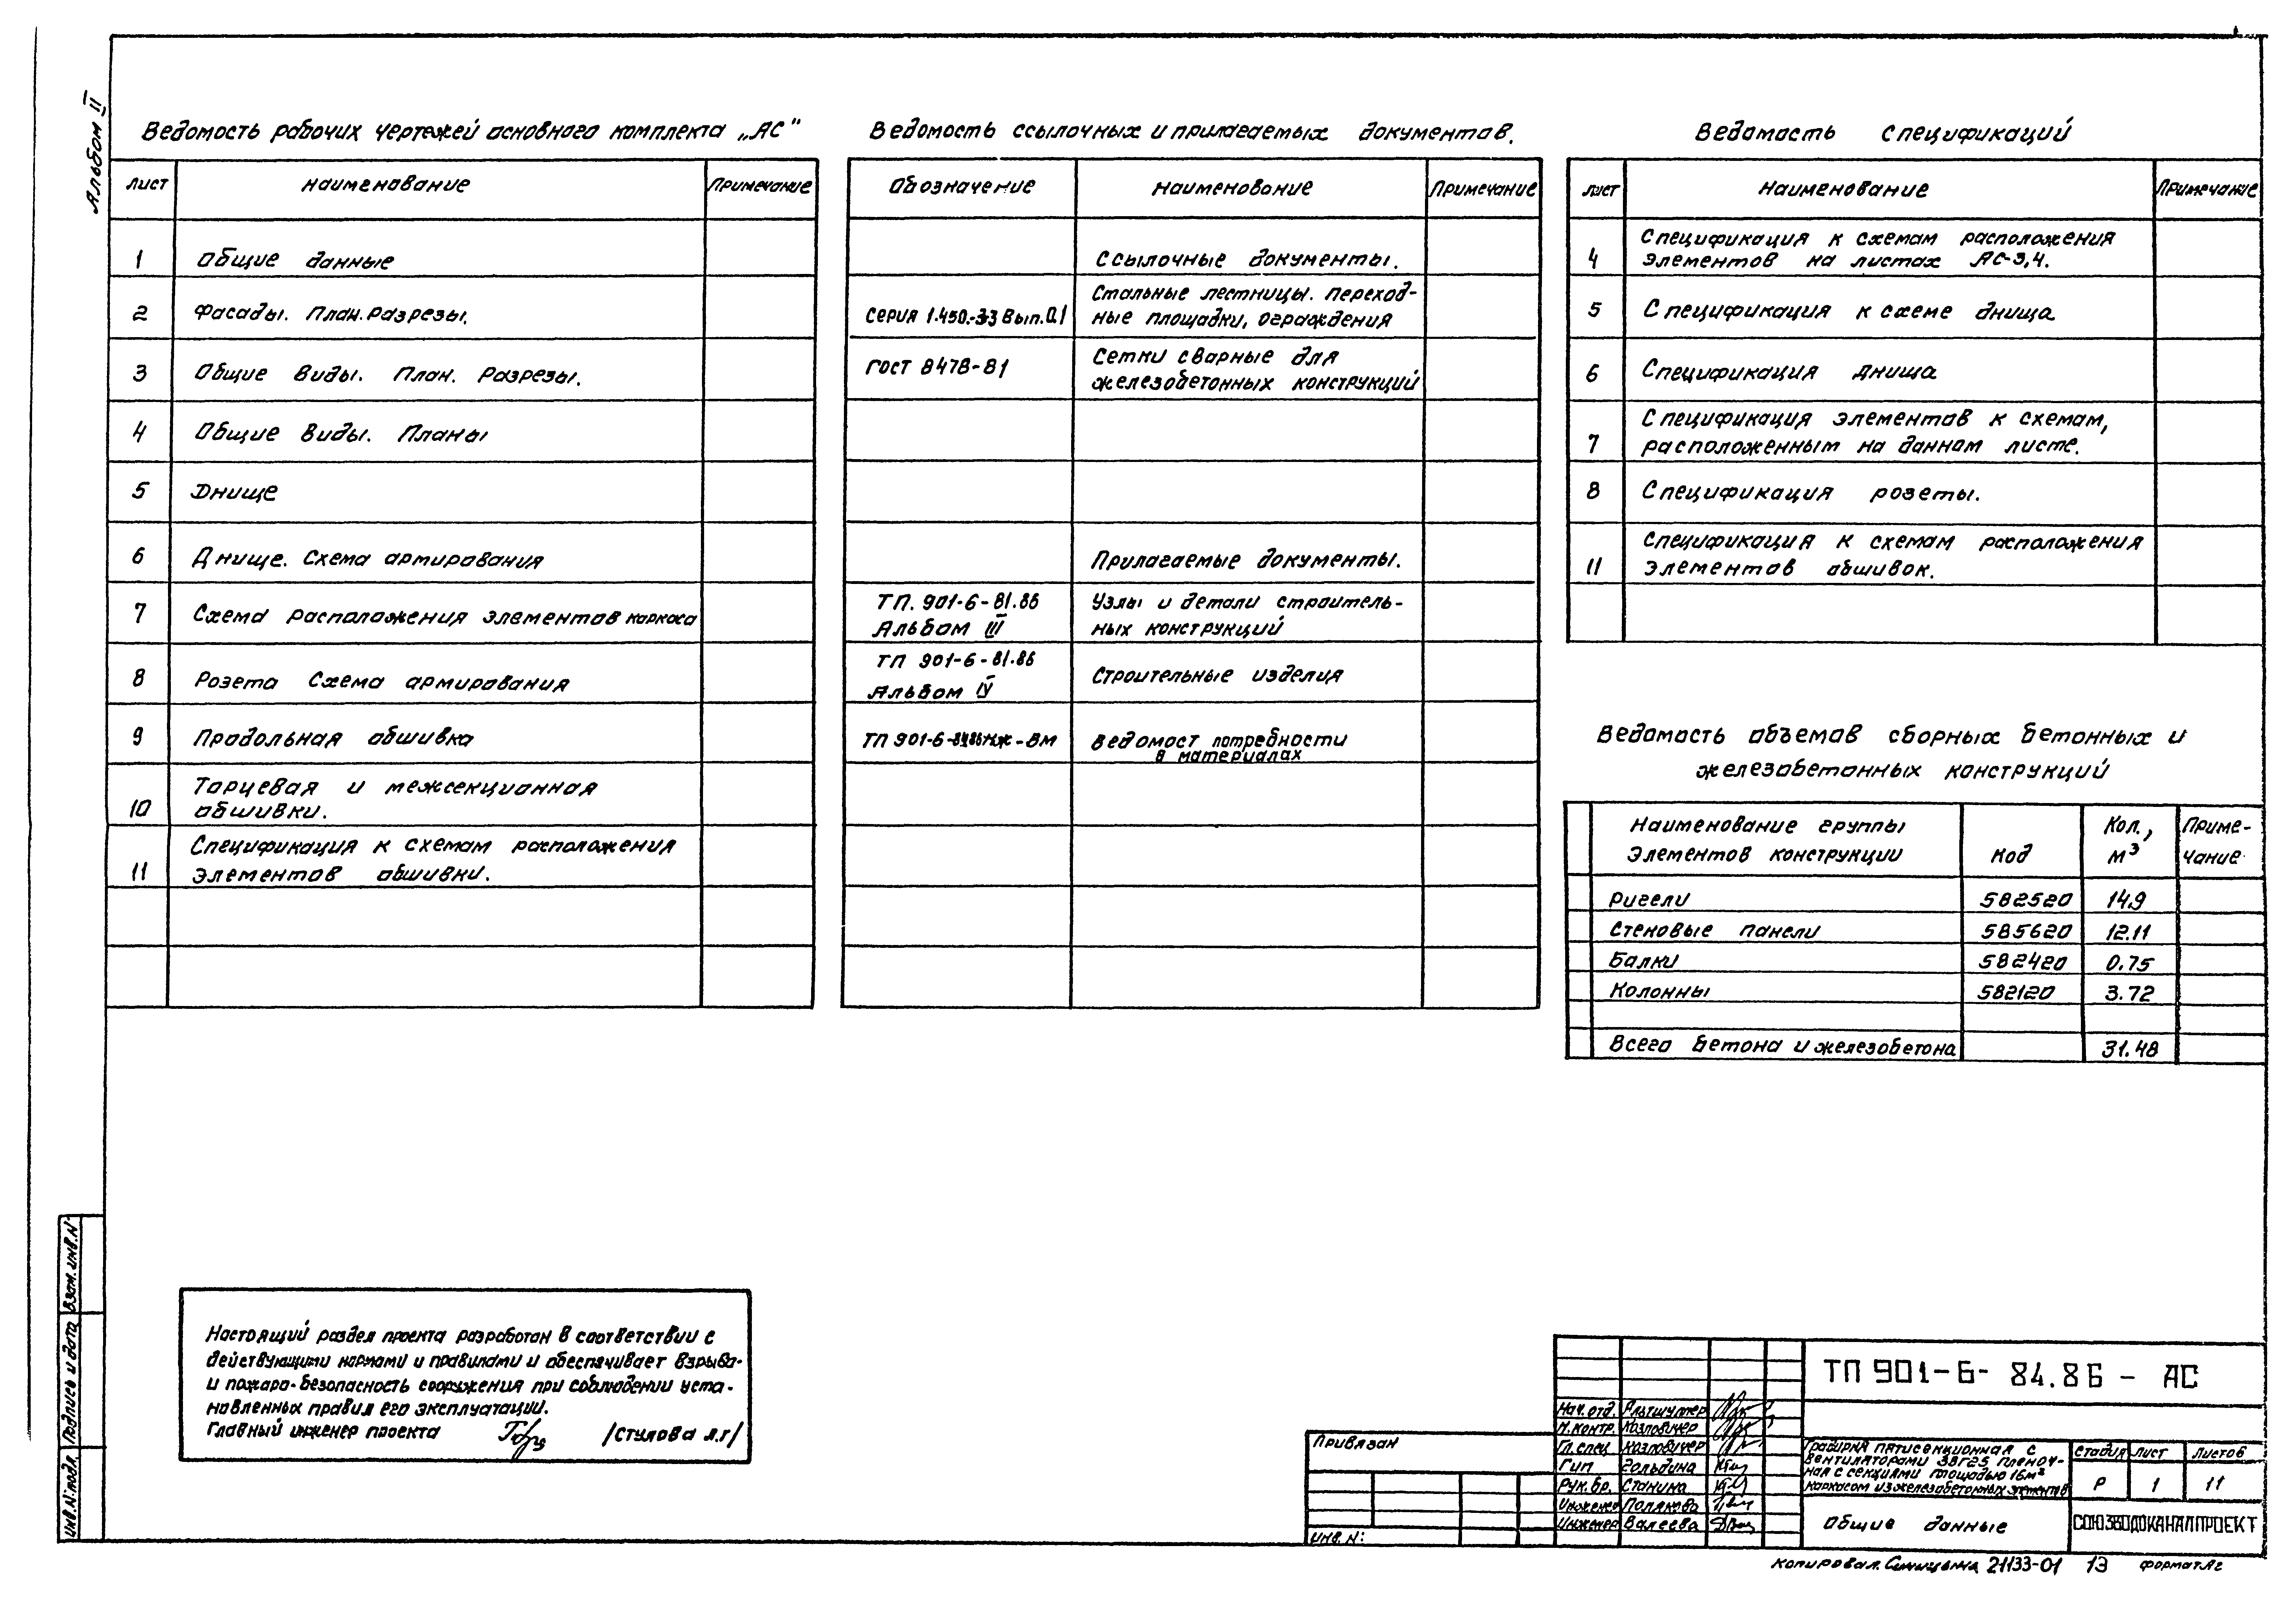 Альбом II
Ведомость рабочих чертежей основного комплекта „АС"
Лист Наименование Примечание
1 Общие данные
2 Фасады. План. Разрезы.
3 Общие виды. План. Разрезы.
4 Общие виды. Планы
5 Днище
6 Днище. Схема армирования
7 Схема расположения элементов каркаса
8 Розета Схема армирования
9 Продольная обшивка
Торцевая и межсекционная
10 обшивки.
Спецификация к схемам расположения
11 элементов обшивки.
Ведомость ссылочных и прилагаемых документов.
Обозначение Наименование Примечание
Ссылочные документы.
Стальные лестницы. Переход-
Серия 1.450.-3.3 Вып. 0.1 ные площадки, ограждения
ГОСТ 8478-81 Сетки сварные для
железобетонных конструкций
Прилагаемые документы.
ТП. 901-6-81.86 Узлы и детали строитель-
Альбом III ных конструкций
ТП 901-6-81.86
Альбом IV Строительные изделия
ТП 901-6- -ВМ Ведомост потребности
в материалах
Ведомость спецификаций
Лист Наименование Примечание
Спецификация к схемам расположения
4 элементов на листах АС-3,4.
5 Спецификация к схеме днища
6 Спецификация днища
Спецификация элементов к схемам,
7 расположенным на данном листе.
8 Спецификация розеты.
Спецификация к схемам расположения
11 элементов обшивок.
Ведомость объемов сборных бетонных и
железобетонных конструкций
Наименование группы Кол., Приме-
Элементов конструкции Код м³ чание
Ригели 582520 14.9
Стеновые панели 585620 12.11
Балки 582420 0.75
Колонны 582120 3.72
Всего бетона и железобетона 31.48
Настоящий раздел проекта разработан в соответствии с
действующими нормами и правилами и обеспечивает взрыво-
и пожаро-безопасность сооружения при соблюдении уста-
новленных правил его эксплуатации.
Главный инженер проекта /Стулова Л.Г/
Инв. N: подл. Подпись и дата Взам. инв. N
Привязан
Инв. N:
ТП 901-6-84.86-АС
Нач. отд. Альтшуллер
Н. контр. Козловичер
Гл. спец Козловичер
Гип Гольдина
Рук. бр. Станина
Инженер Полякова
Инженер Валеева
Градирня пятисекционная с
вентиляторами 3ВГ25 пленоч-
ная с секциями площадью 16м²
каркасом из железобетонных элементов
Стадия Лист Листов
Р 1 11
Общие данные
СОЮЗВОДОКАНАЛПРОЕКТ
Копировал. Синицына 21133-01 13 формат А2